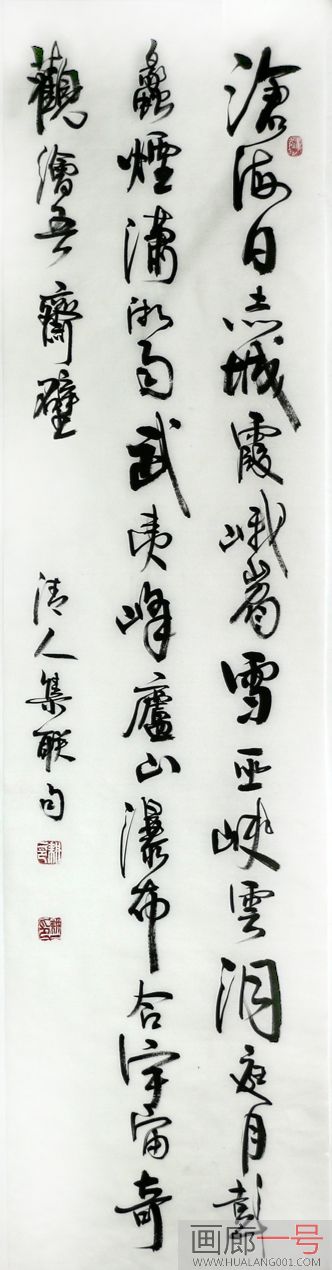 滄海日赤城霞峨嵋雪巫峽雲洞庭月彭
蠡煙瀟湘雨武夷峰廬山瀑布合宇宙奇
觀繪吾齋壁
清人集联句
画廊一号
WWW.HUALANG001.COM